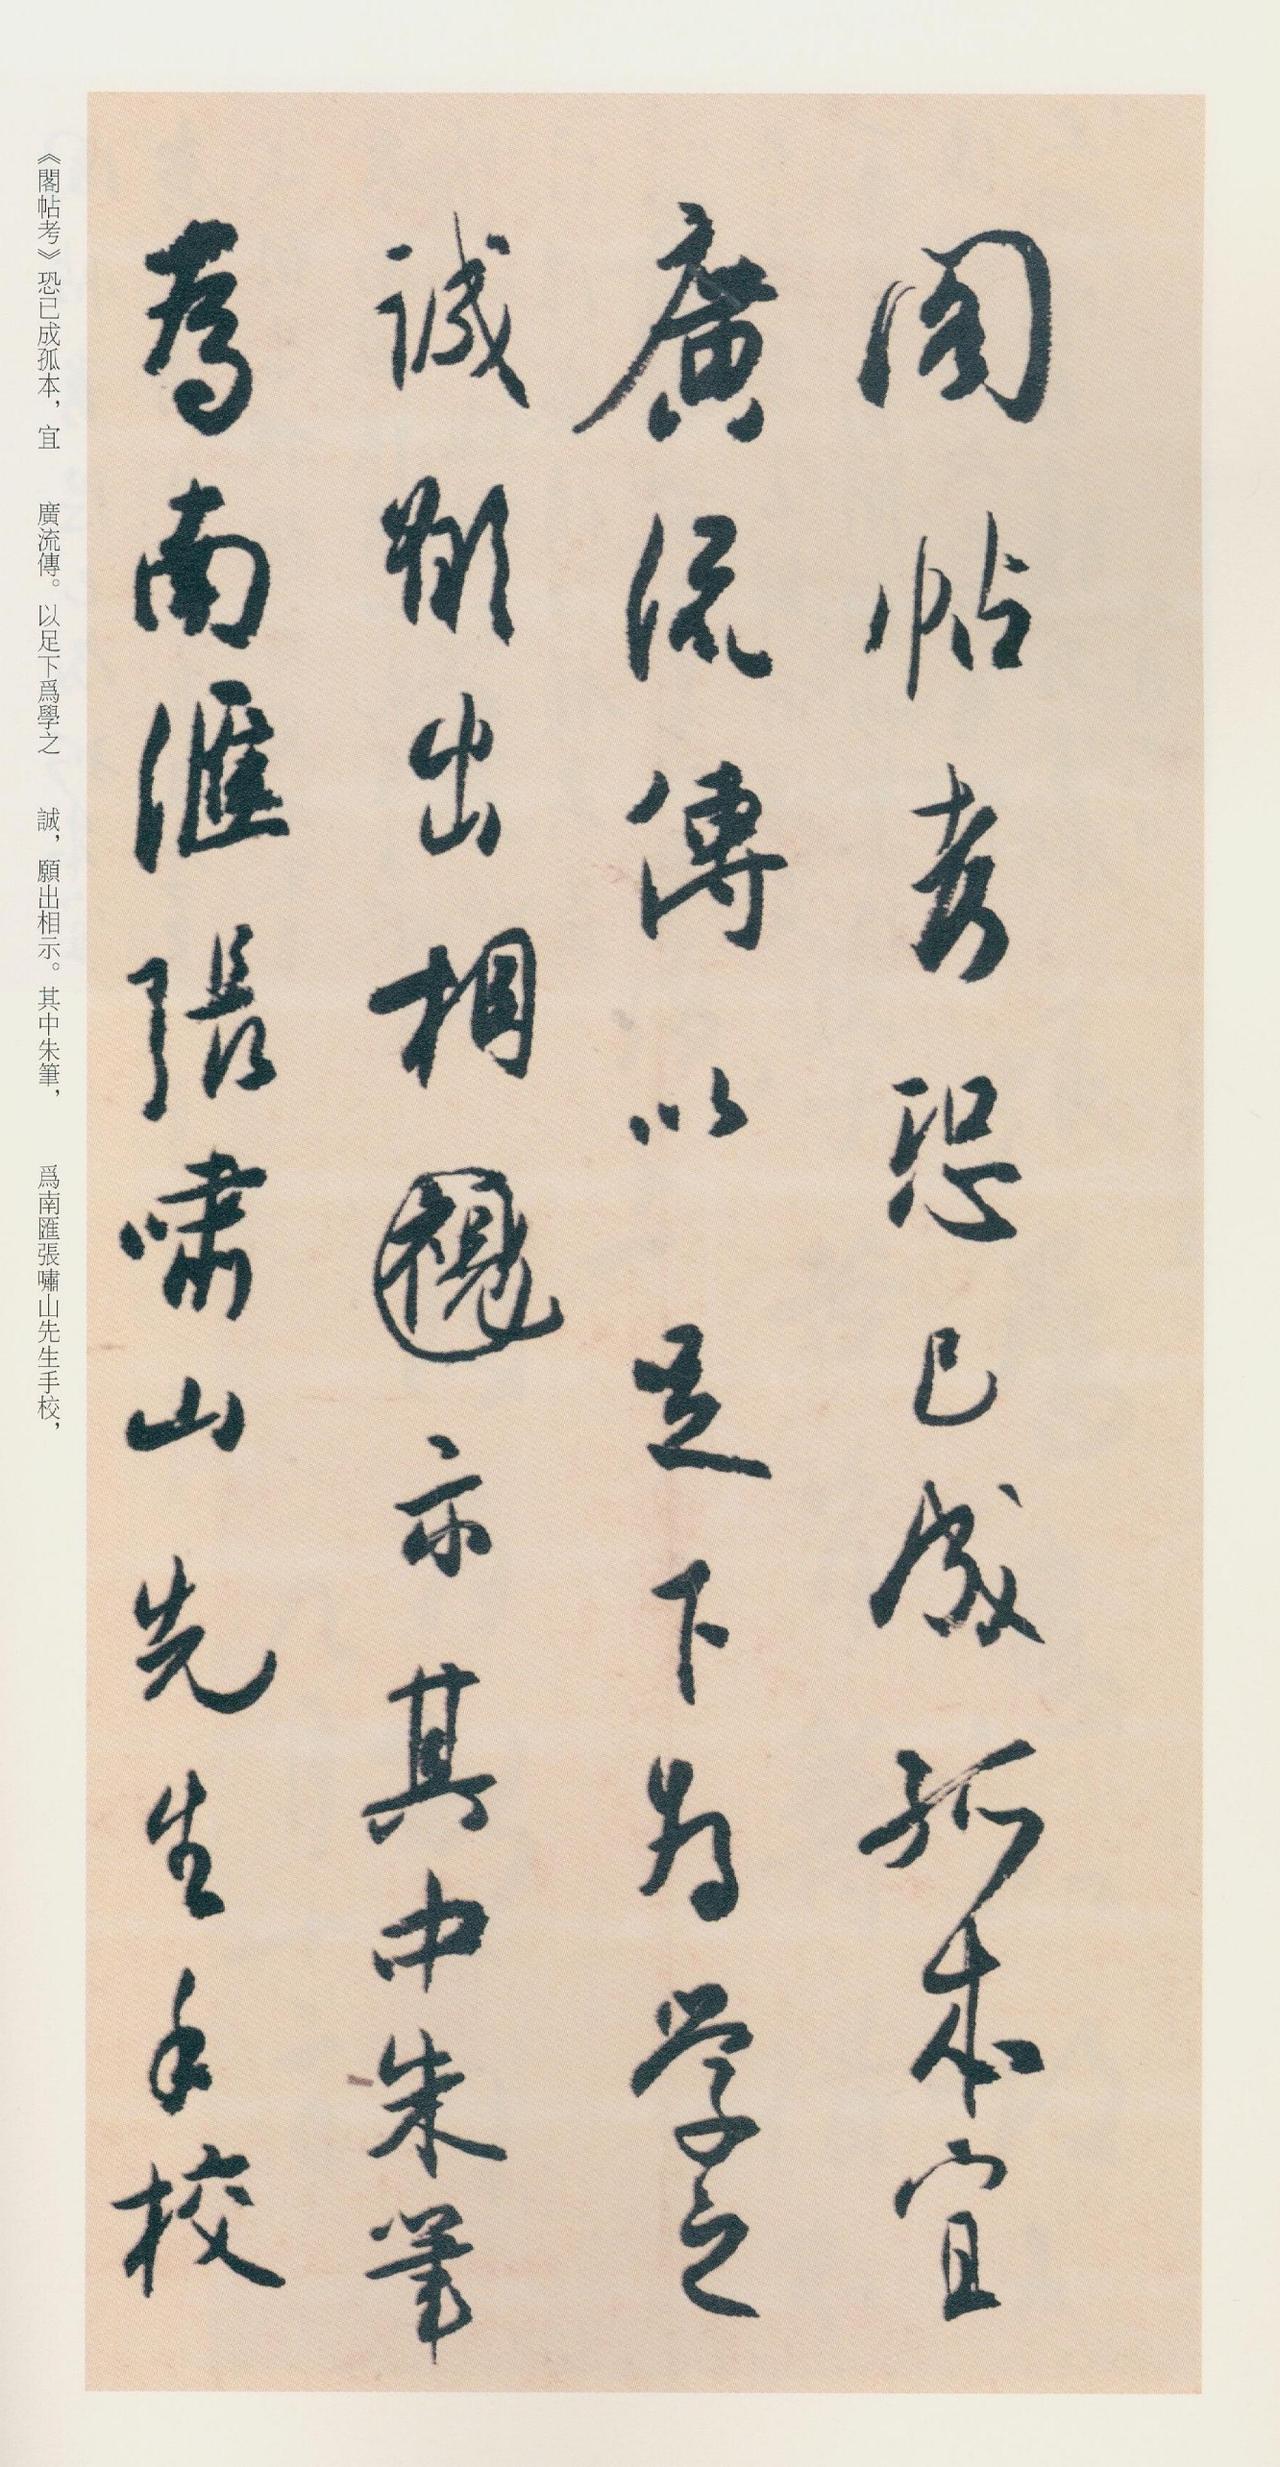 閣帖考恐已成孤本宜
廣流傳以足下為学之
誠願出相視示其中朱筆
為南滙張嘯山先生手校
《閣帖考》恐已成孤本，宜　廣流傳。以足下爲學之　誠，願出相示。其中朱筆，　爲南匯張嘯山先生手校，